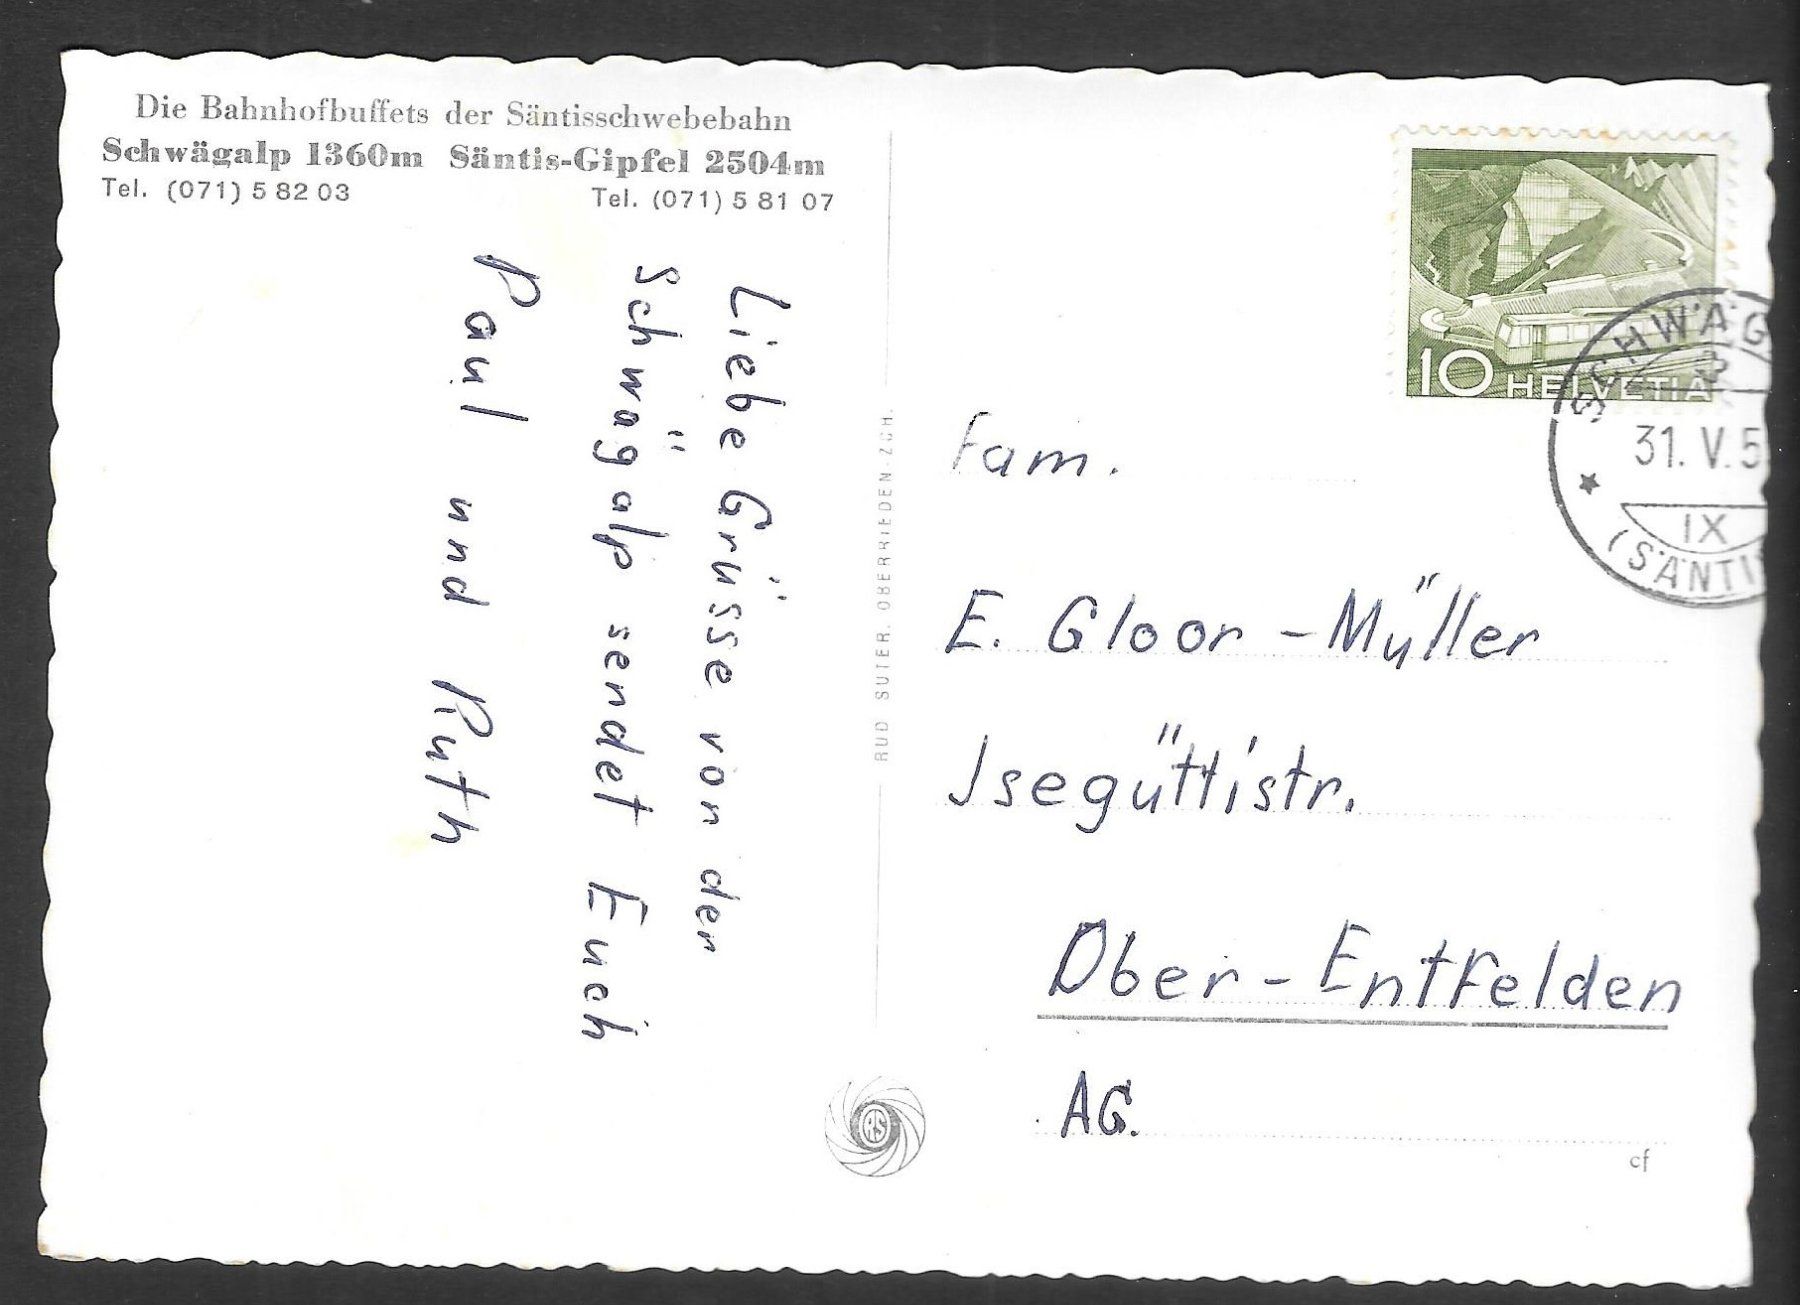 Die Bahnhofbuffets der Säntisschwebebahn
Schwägalp 1360m Säntis-Gipfel 2504m
Tel. (071) 5 82 03 Tel. (071) 5 81 07
Liebe Grüsse von der
Schwägalp sendet Euch
Paul und Ruth
RUD SUTER, OBERRIEDEN-ZCH.
10 HELVETIA
SCHWÄG
31. V. 5
IX
(SÄNTI
Fam.
E. Gloor-Müller
Isegüttistr.
Ober-Entfelden
AG.
RS
cf